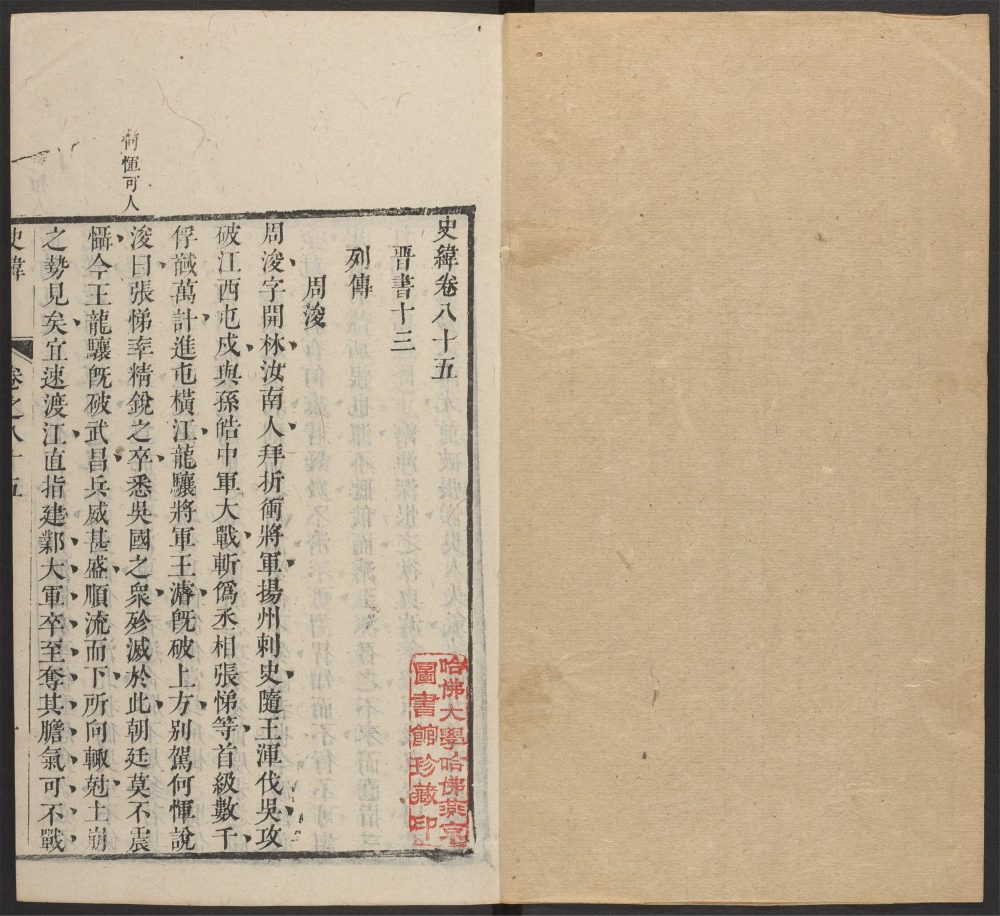 史緯卷八十五
晉書十三
列傳
周浚
周浚字開林汝南人拜折衝將軍揚州刺史隨王渾伐吳攻
破江西屯戍與孫皓中軍大戰斬偽丞相張悌等首級數千
俘馘萬計進屯橫江龍驤將軍王濬旣破上方别駕何惲說
浚曰張悌率精銳之卒悉吳國之衆殄滅於此朝廷莫不震
懾今王龍驤旣破武昌兵威甚盛順流而下所向輙尅土崩
之勢見矣宜速渡江直指建鄴大軍卒至奪其膽氣可不戰
史緯
卷之八十五
惲可人
哈佛大學哈佛燕京
圖書館珍藏印